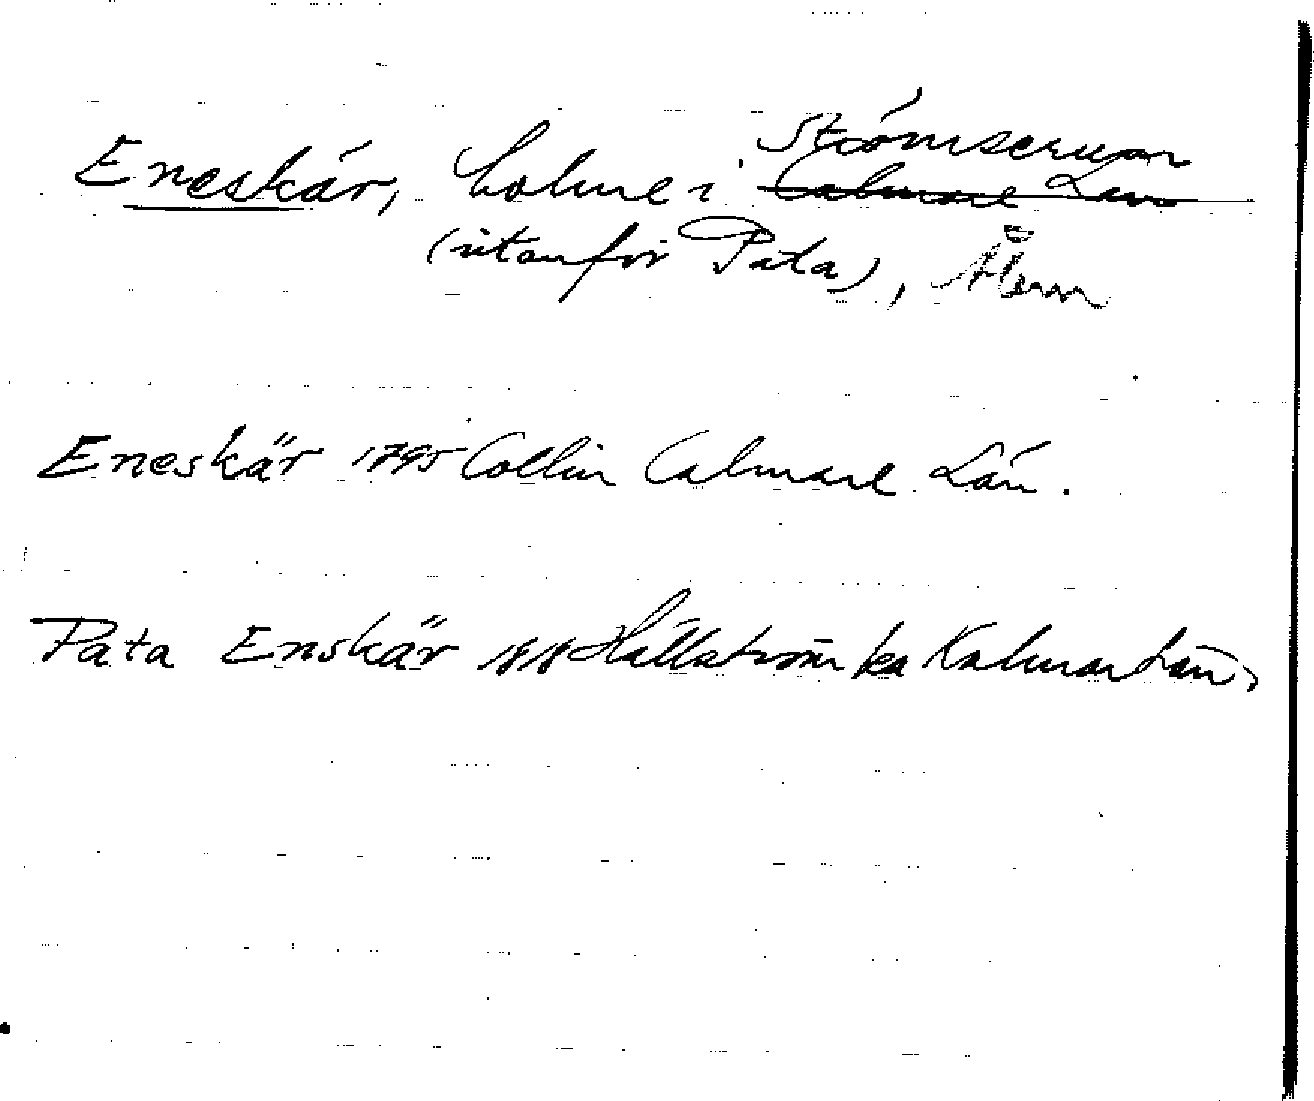 Strömserum
Eneskär, holme i Calmare Län
(utanför Pata), Ålem
Eneskär 1795 Collin Calmare Län.
Pata Enskär 1818 Hällström ka Kalmar Län,